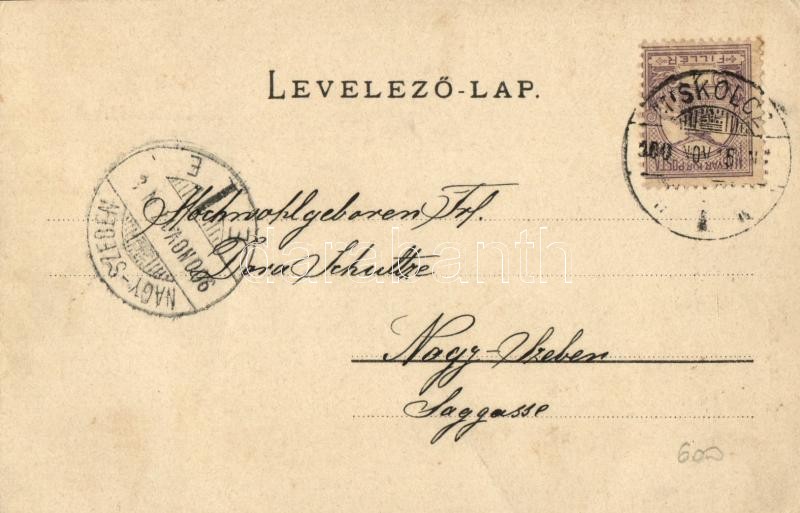 LEVELEZŐ-LAP.
FILLÉR
MAGYAR KIR. POSTA
MISKOLCZ
NAGY-SZEBEN
Hochwohlgeboren Frl.
Dora Schultze
Nagy-Szeben
Saggasse
darabanth
600